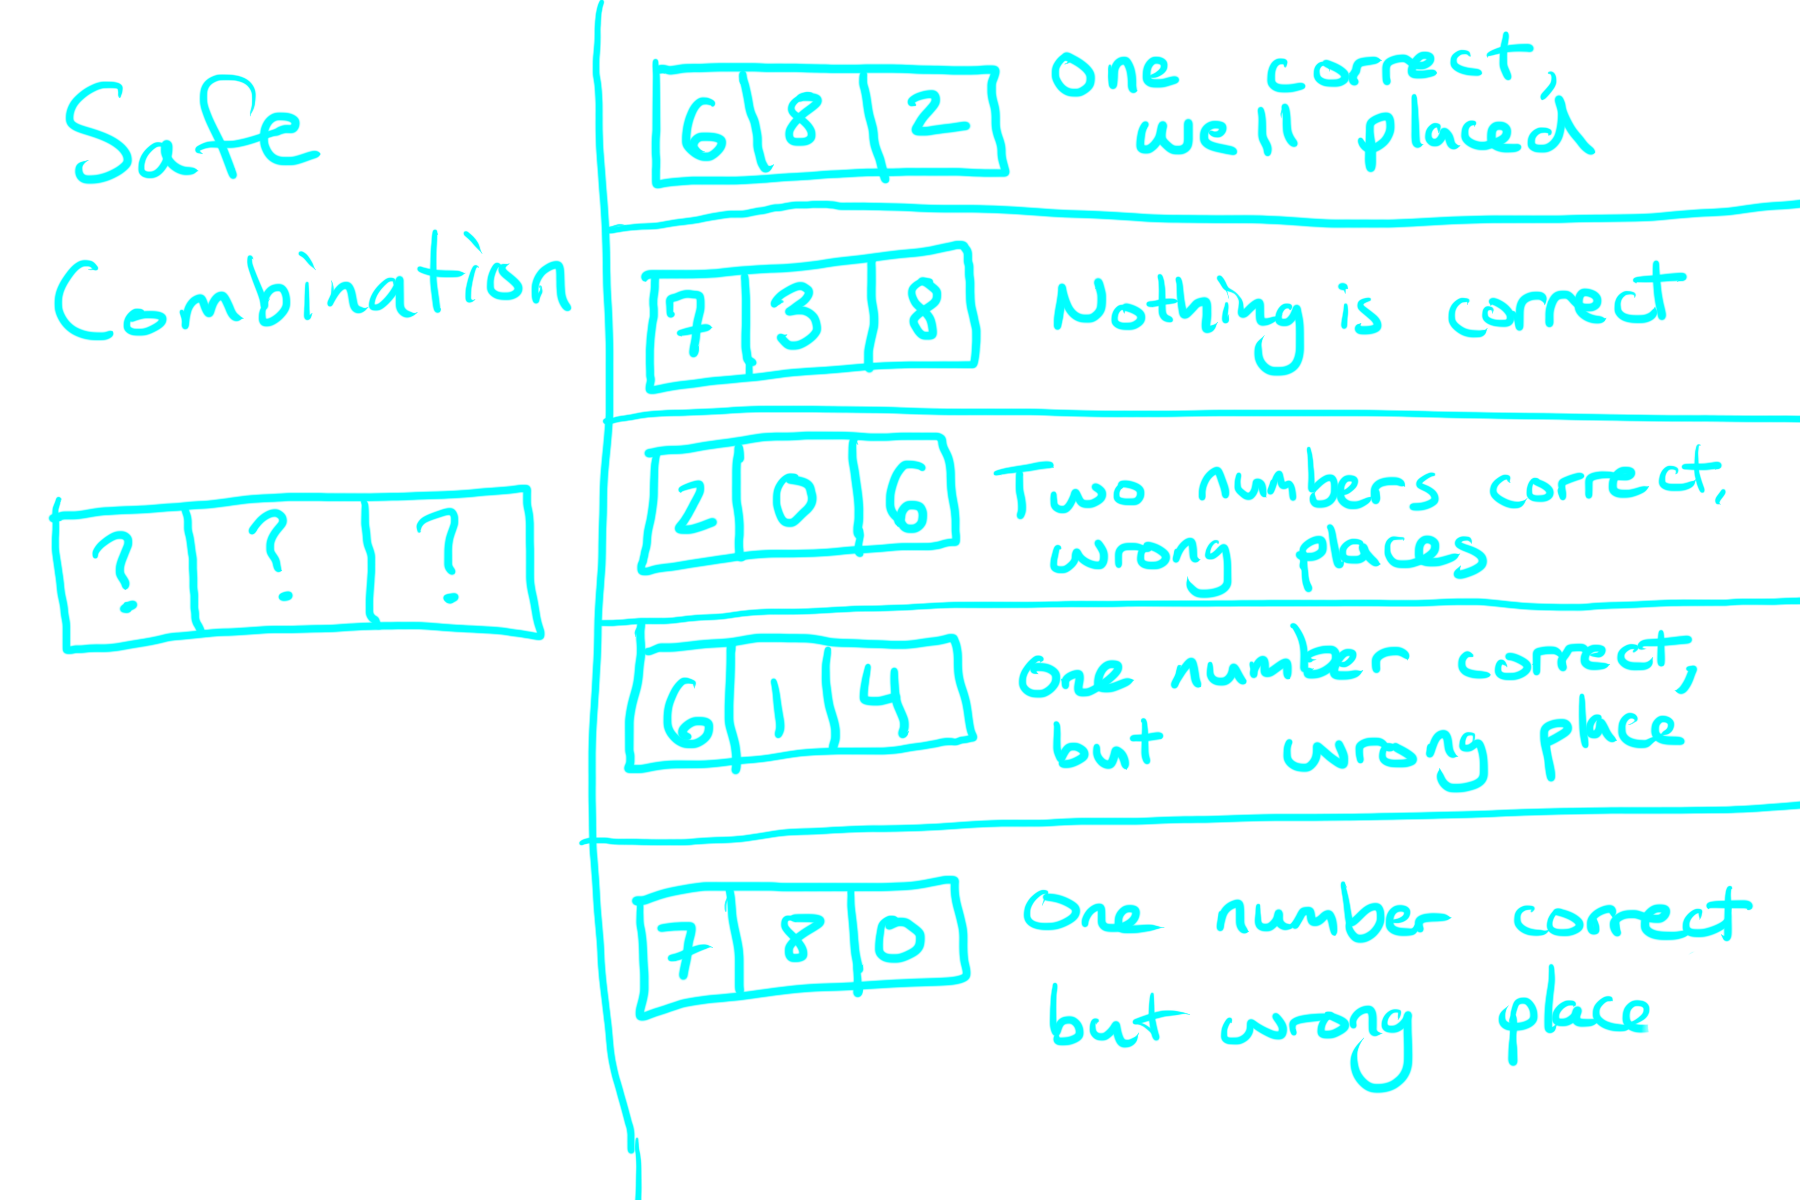 Safe
Combination
? ? ?
6 8 2 One correct,
well placed
7 3 8 Nothing is correct
2 0 6 Two numbers correct,
wrong places
6 1 4 One number correct,
but wrong place
7 8 0 One number correct
but wrong place